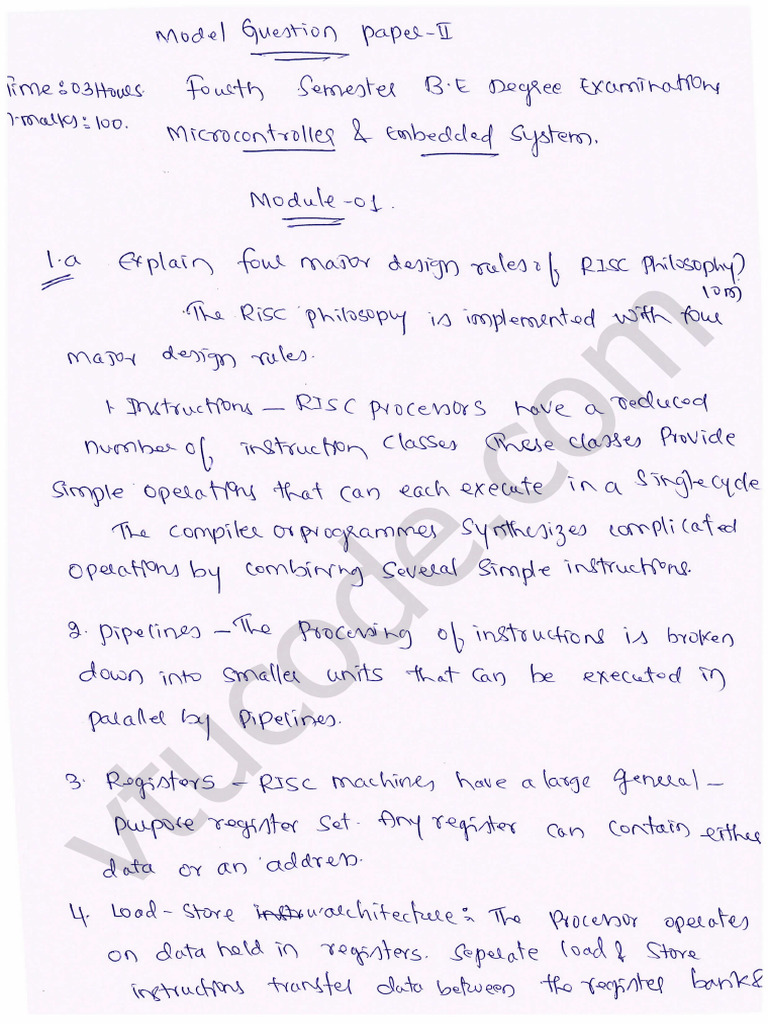 Model Question paper-II
Time:03Hours. Fourth Semester B.E Degree Examinations
marks:100.
Microcontroller & Embedded System.
Module-01.
1.a Explain four major design rules of RISC Philosophy?
10m
The RISC philosophy is implemented with four
major design rules.
1. Instructions – RISC processors have a reduced
number of instruction classes These classes Provide
Simple operations that can each execute in a Single cycle
The compiler or programmer Synthesizes complicated
operations by combining several simple instructions.
2. pipelines – The Processing of instructions is broken
down into smaller units that can be executed in
parallel by pipelines.
3. Registors – RISC machines have a large general –
purpose register set. Any register can contain either
data or an address.
4. Load-Store architecture: The Processor operates
on data held in registers. Seperate load & Store
instructions transfer data between the register bank &
vtucode.com